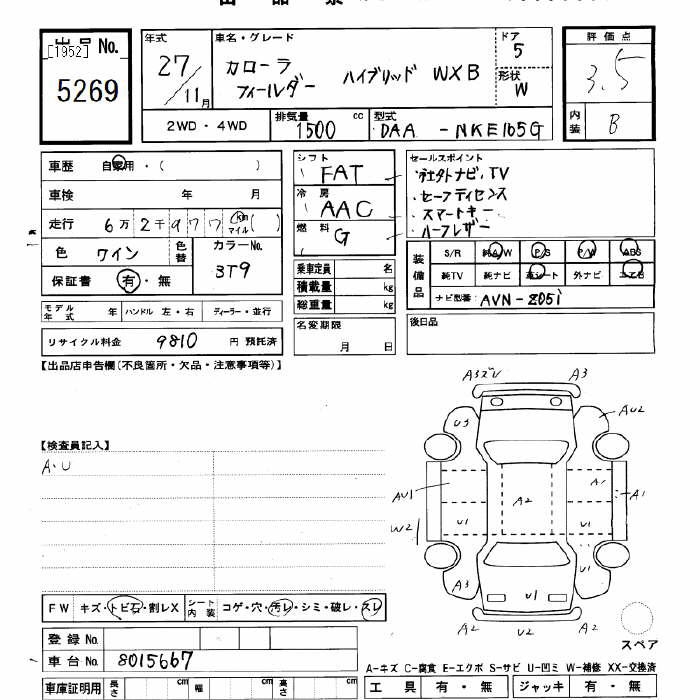 出品 No.
[1952]
5269
年式
27/11月
車名・グレード
カローラ
フィールダー ハイブリッド WXB
ドア
5
形状
W
評価点
3.5
内装
B
2WD・4WD
排気量
1500 cc
型式
DAA - NKE165G
車歴 自家用・( )
車検 年 月
走行 6万2千977 km マイル ( )
色 ワイン
色替
カラーNo.
3T9
保証書 有・無
シフト
FAT
冷房
AAC
燃料
G
セールスポイント
・社外ナビ、TV
・セーフティセンス
・スマートキー
・ハーフレザー
装備品
S/R 純A/W P/S P/W ABS
純TV 純ナビ 革シート 外ナビ エアB
ナビ型番: AVN-Z05i
乗車定員 名
積載量 kg
総重量 kg
モデル年式 年 ハンドル 左・右 ディーラー・並行
リサイクル料金 9810 円 預託済
名変期限
月 日
後日品
【出品店申告欄(不良箇所・欠品・注意事項等)】
【検査員記入】
A・U
A3ズレ A3
U3 AU2
AU1 A2 A1 A1
W2 U1 U1
A3 U1 U1
A2 U2 A2
スペア
FW キズ・トビ石・割レX シート内装 コゲ・穴・汚レ・シミ・破レ・スレ
登録 No.
車台 No. 8015667
A-キズ C-腐食 E-エクボ S-サビ U-凹ミ W-補修 XX-交換済
車庫証明用 長さ cm 幅 cm 高さ cm
工具 有・無 ジャッキ 有・無